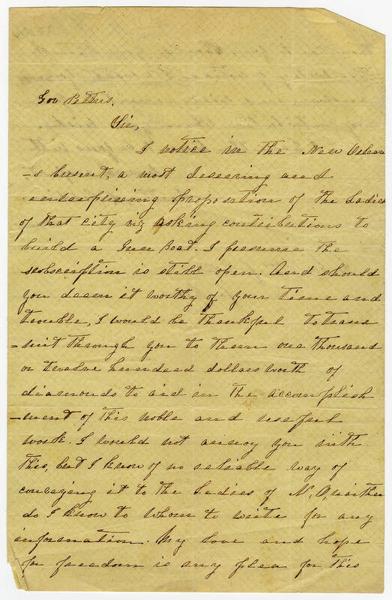 Gov Pettus.
Sir,
I notice in the New Orlean
-s Cresent, a most deserving and
enterprising proposition of the Ladies
of that City in asking contributions to
build a Gun Boat. I presume the
subscription is still open. And should
you deem it worthy of your time and
trouble, I would be thankful to trans
-mit through you to them one thousand
or twelve hundred dollars worth of
diamonds to aid in the accomplish
-ment of this noble and useful
work. I would not annoy you with
this, but I know of no reliable way of
conveying it to the Ladies of N. O
do I know to whom to write for any
information. My love and hope
for freedom is any plea for this